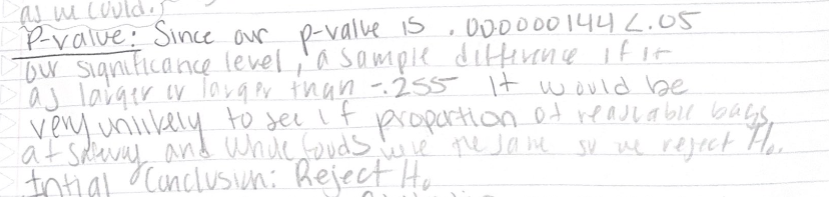 as we could.
P-value: Since our p-value is .000000144 < .05
our significance level, a sample difference if it
as larger or larger than -.255 It would be
very unlikely to see if proportion of reusable bags
at Safeway and Whole foods were the same so we reject H₀.
Intial Conclusion: Reject H₀